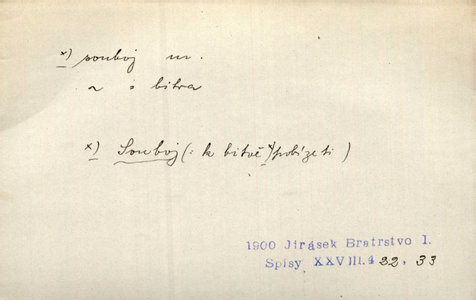 x) souboj m.
a s bitva
x) Souboj (: k bitvě x) pobízeti )
1900 Jirásek Bratrstvo 1.
Spisy XXVIII.4 32. 33